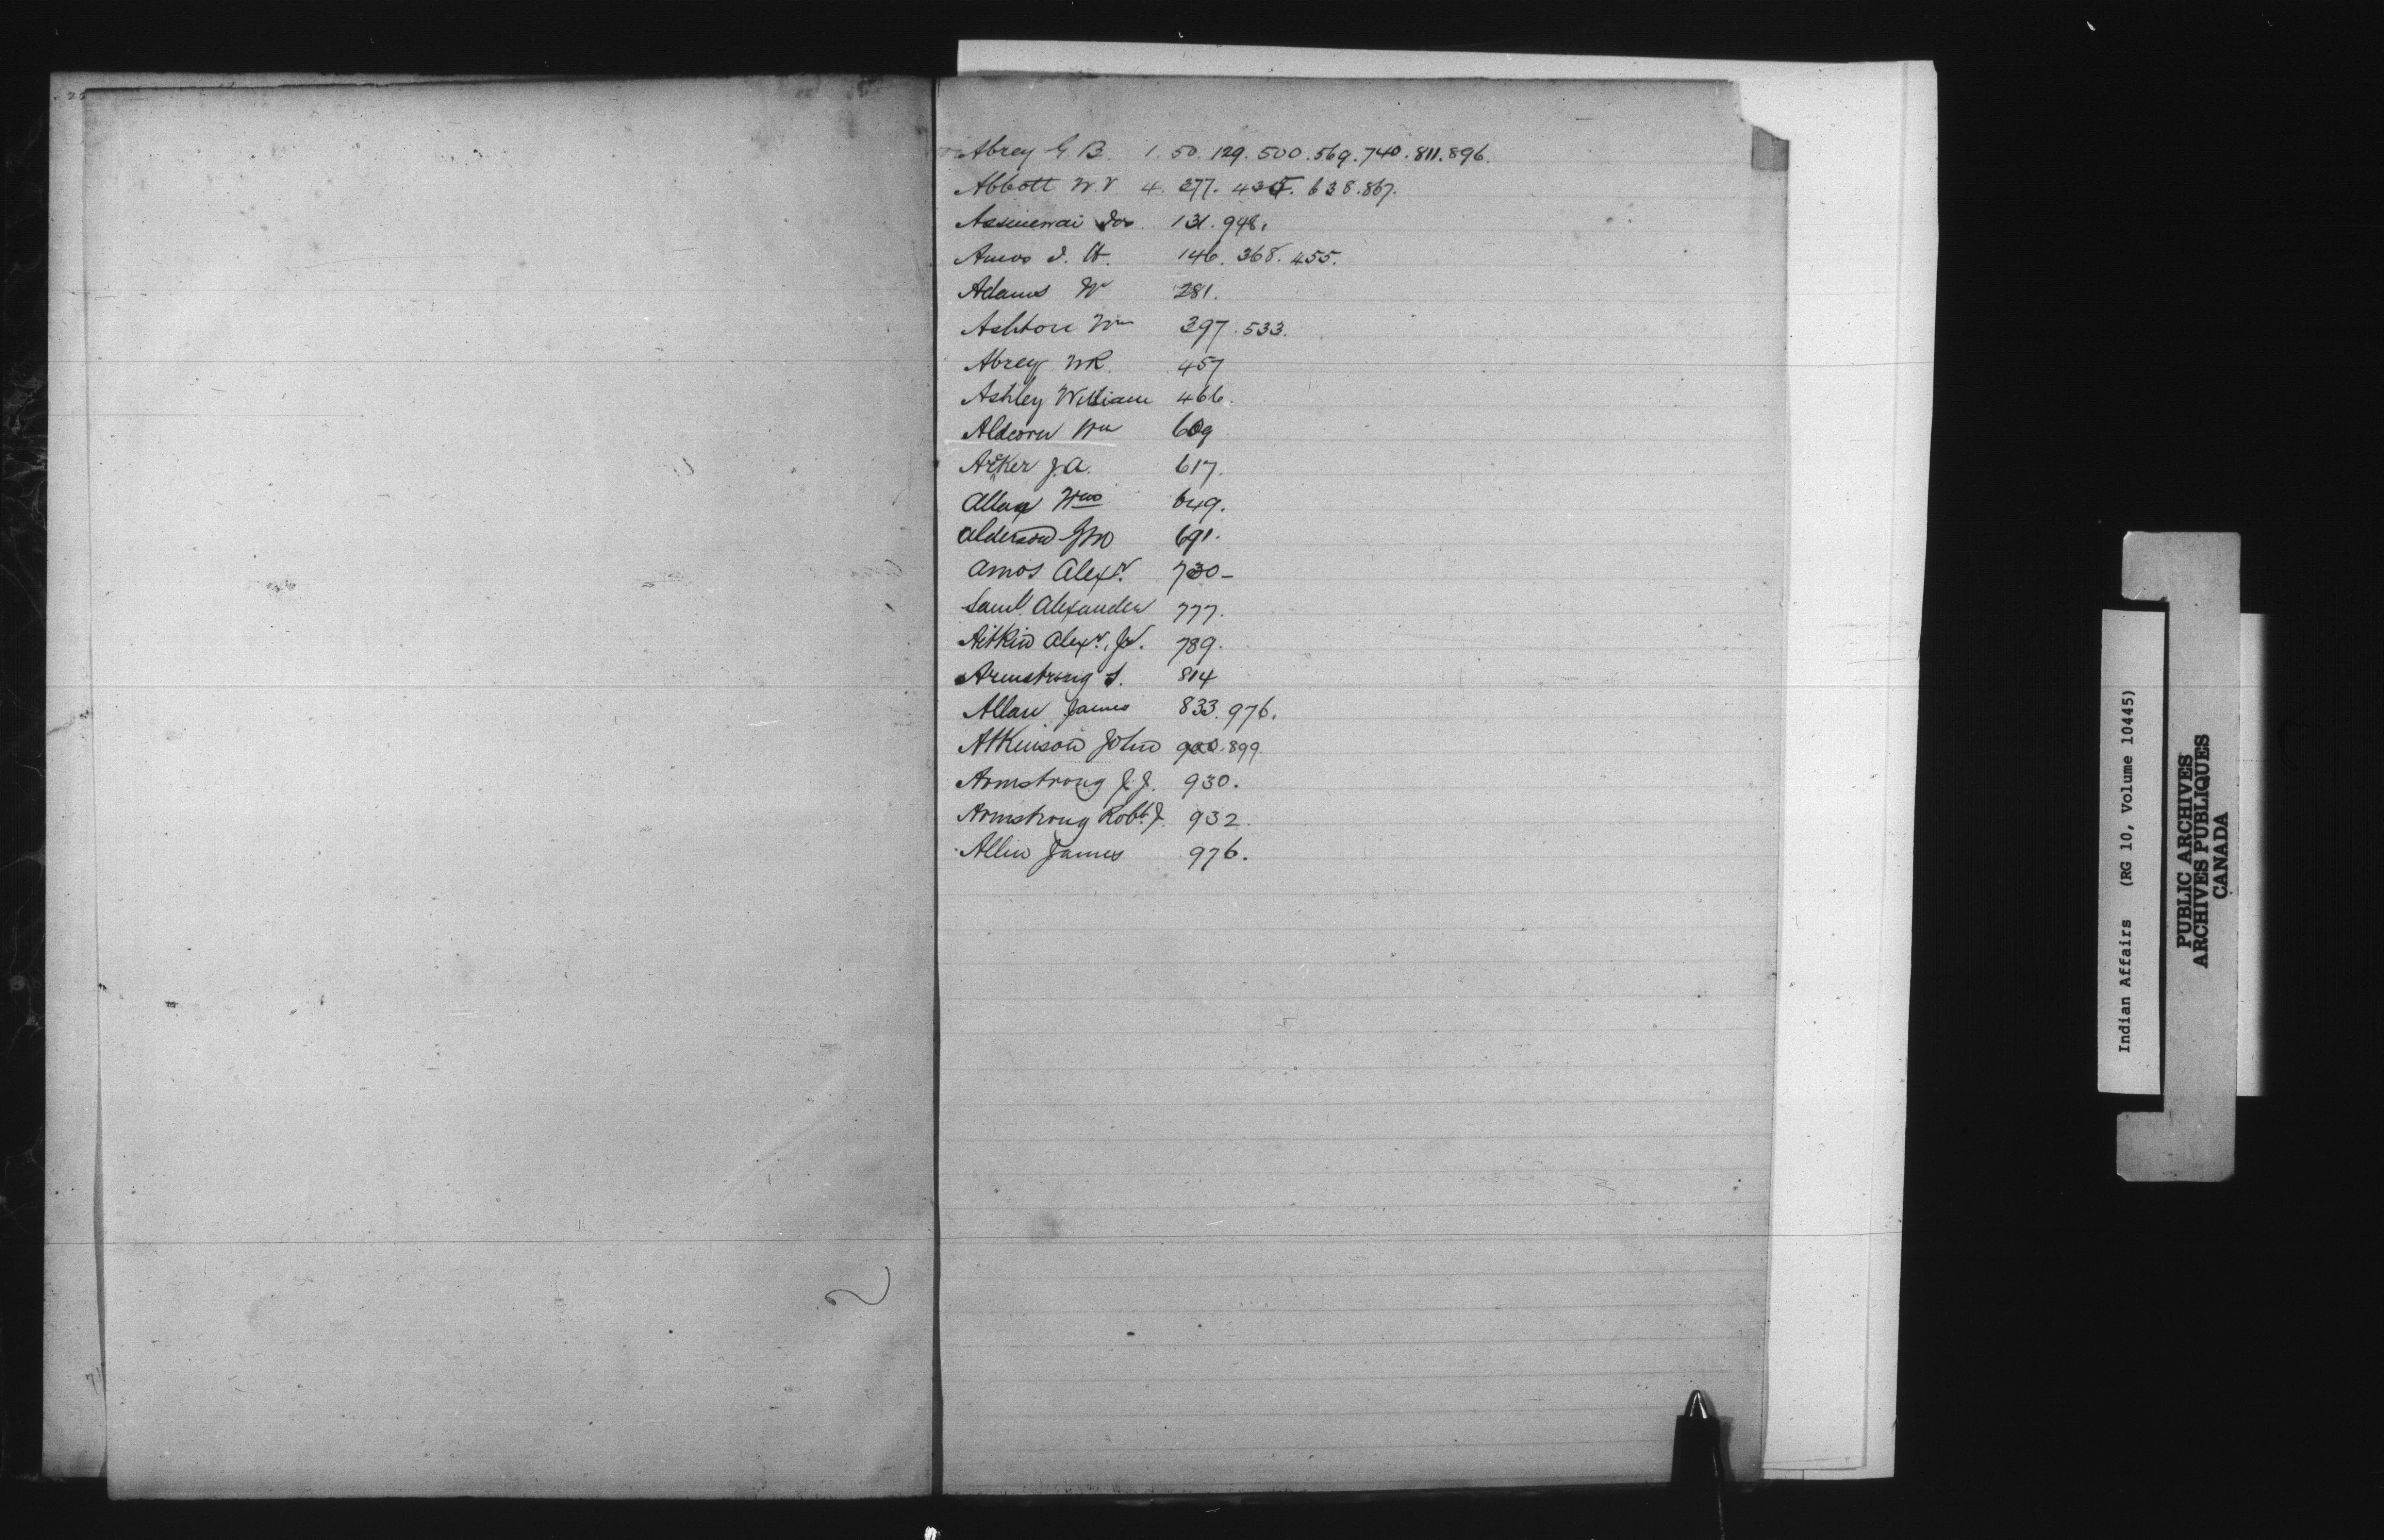 Abrey G. B. 1. 50. 129. 500. 569. 740. 811. 896.
Abbott W. V. 4. 277. 435. 638. 867.
Assinewai Jos. 131. 948.
Amos I. H. 146. 368. 455.
Adams W 281.
Ashton Wm 397. 533.
Abrey W R. 457
Ashley William 466.
Aldcorn Wm 609
Acker J. A. 617.
Allan Wm 649.
Alderson Jno 691.
Amos Alexr. 730-
Saml. Alexander 777.
Aitkin Alexr. Jr. 789.
Armstrong S. 814
Allan James 833. 976.
Atkinson John 900. 899.
Armstrong J. J. 930.
Armstrong Robt J. 932.
Allin James 976.
Indian Affairs (RG 10, Volume 10445)
PUBLIC ARCHIVES
ARCHIVES PUBLIQUES
CANADA